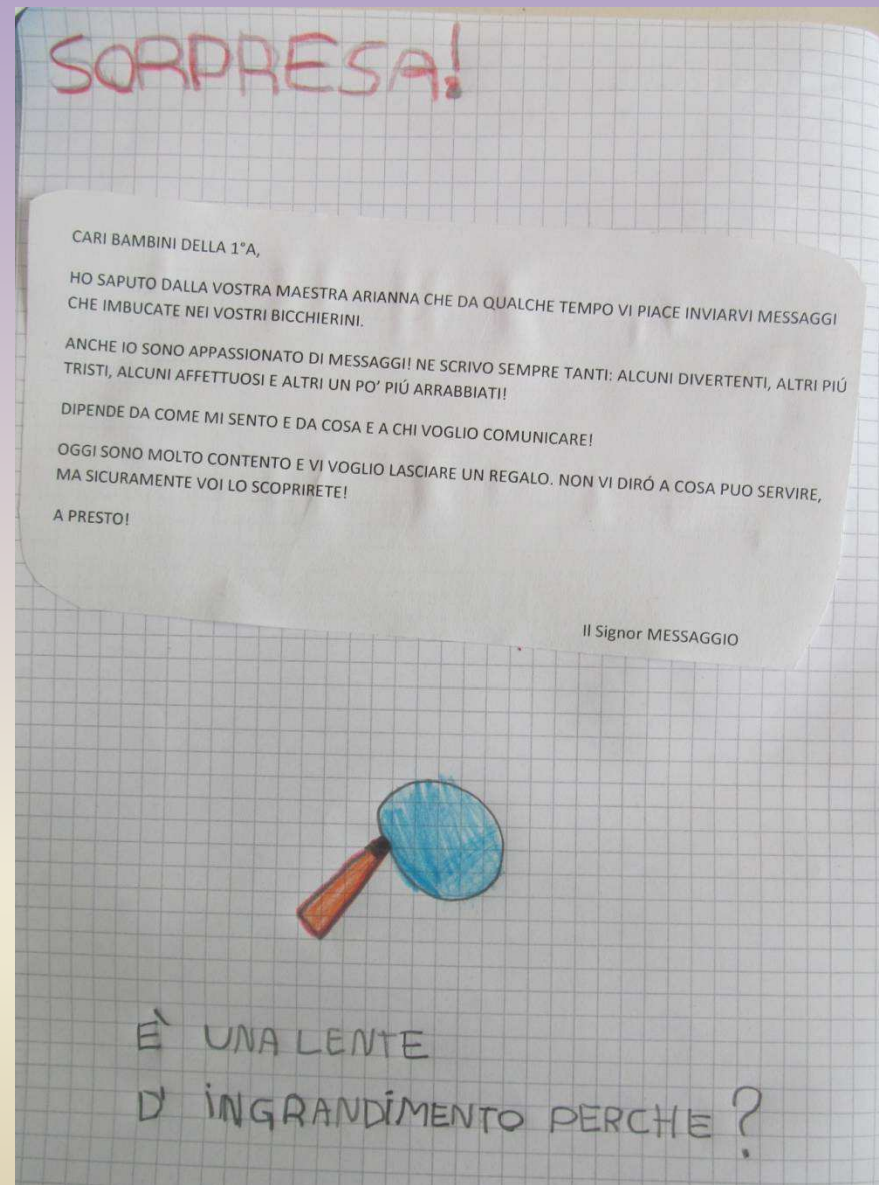 SORPRESA!
CARI BAMBINI DELLA 1°A,
HO SAPUTO DALLA VOSTRA MAESTRA ARIANNA CHE DA QUALCHE TEMPO VI PIACE INVIARVI MESSAGGI
CHE IMBUCATE NEI VOSTRI BICCHIERINI.
ANCHE IO SONO APPASSIONATO DI MESSAGGI! NE SCRIVO SEMPRE TANTI: ALCUNI DIVERTENTI, ALTRI PIÚ
TRISTI, ALCUNI AFFETTUOSI E ALTRI UN PO' PIÚ ARRABBIATI!
DIPENDE DA COME MI SENTO E DA COSA E A CHI VOGLIO COMUNICARE!
OGGI SONO MOLTO CONTENTO E VI VOGLIO LASCIARE UN REGALO. NON VI DIRÓ A COSA PUO SERVIRE,
MA SICURAMENTE VOI LO SCOPRIRETE!
A PRESTO!
Il Signor MESSAGGIO
È UNA LENTE
D' INGRANDIMENTO PERCHE?